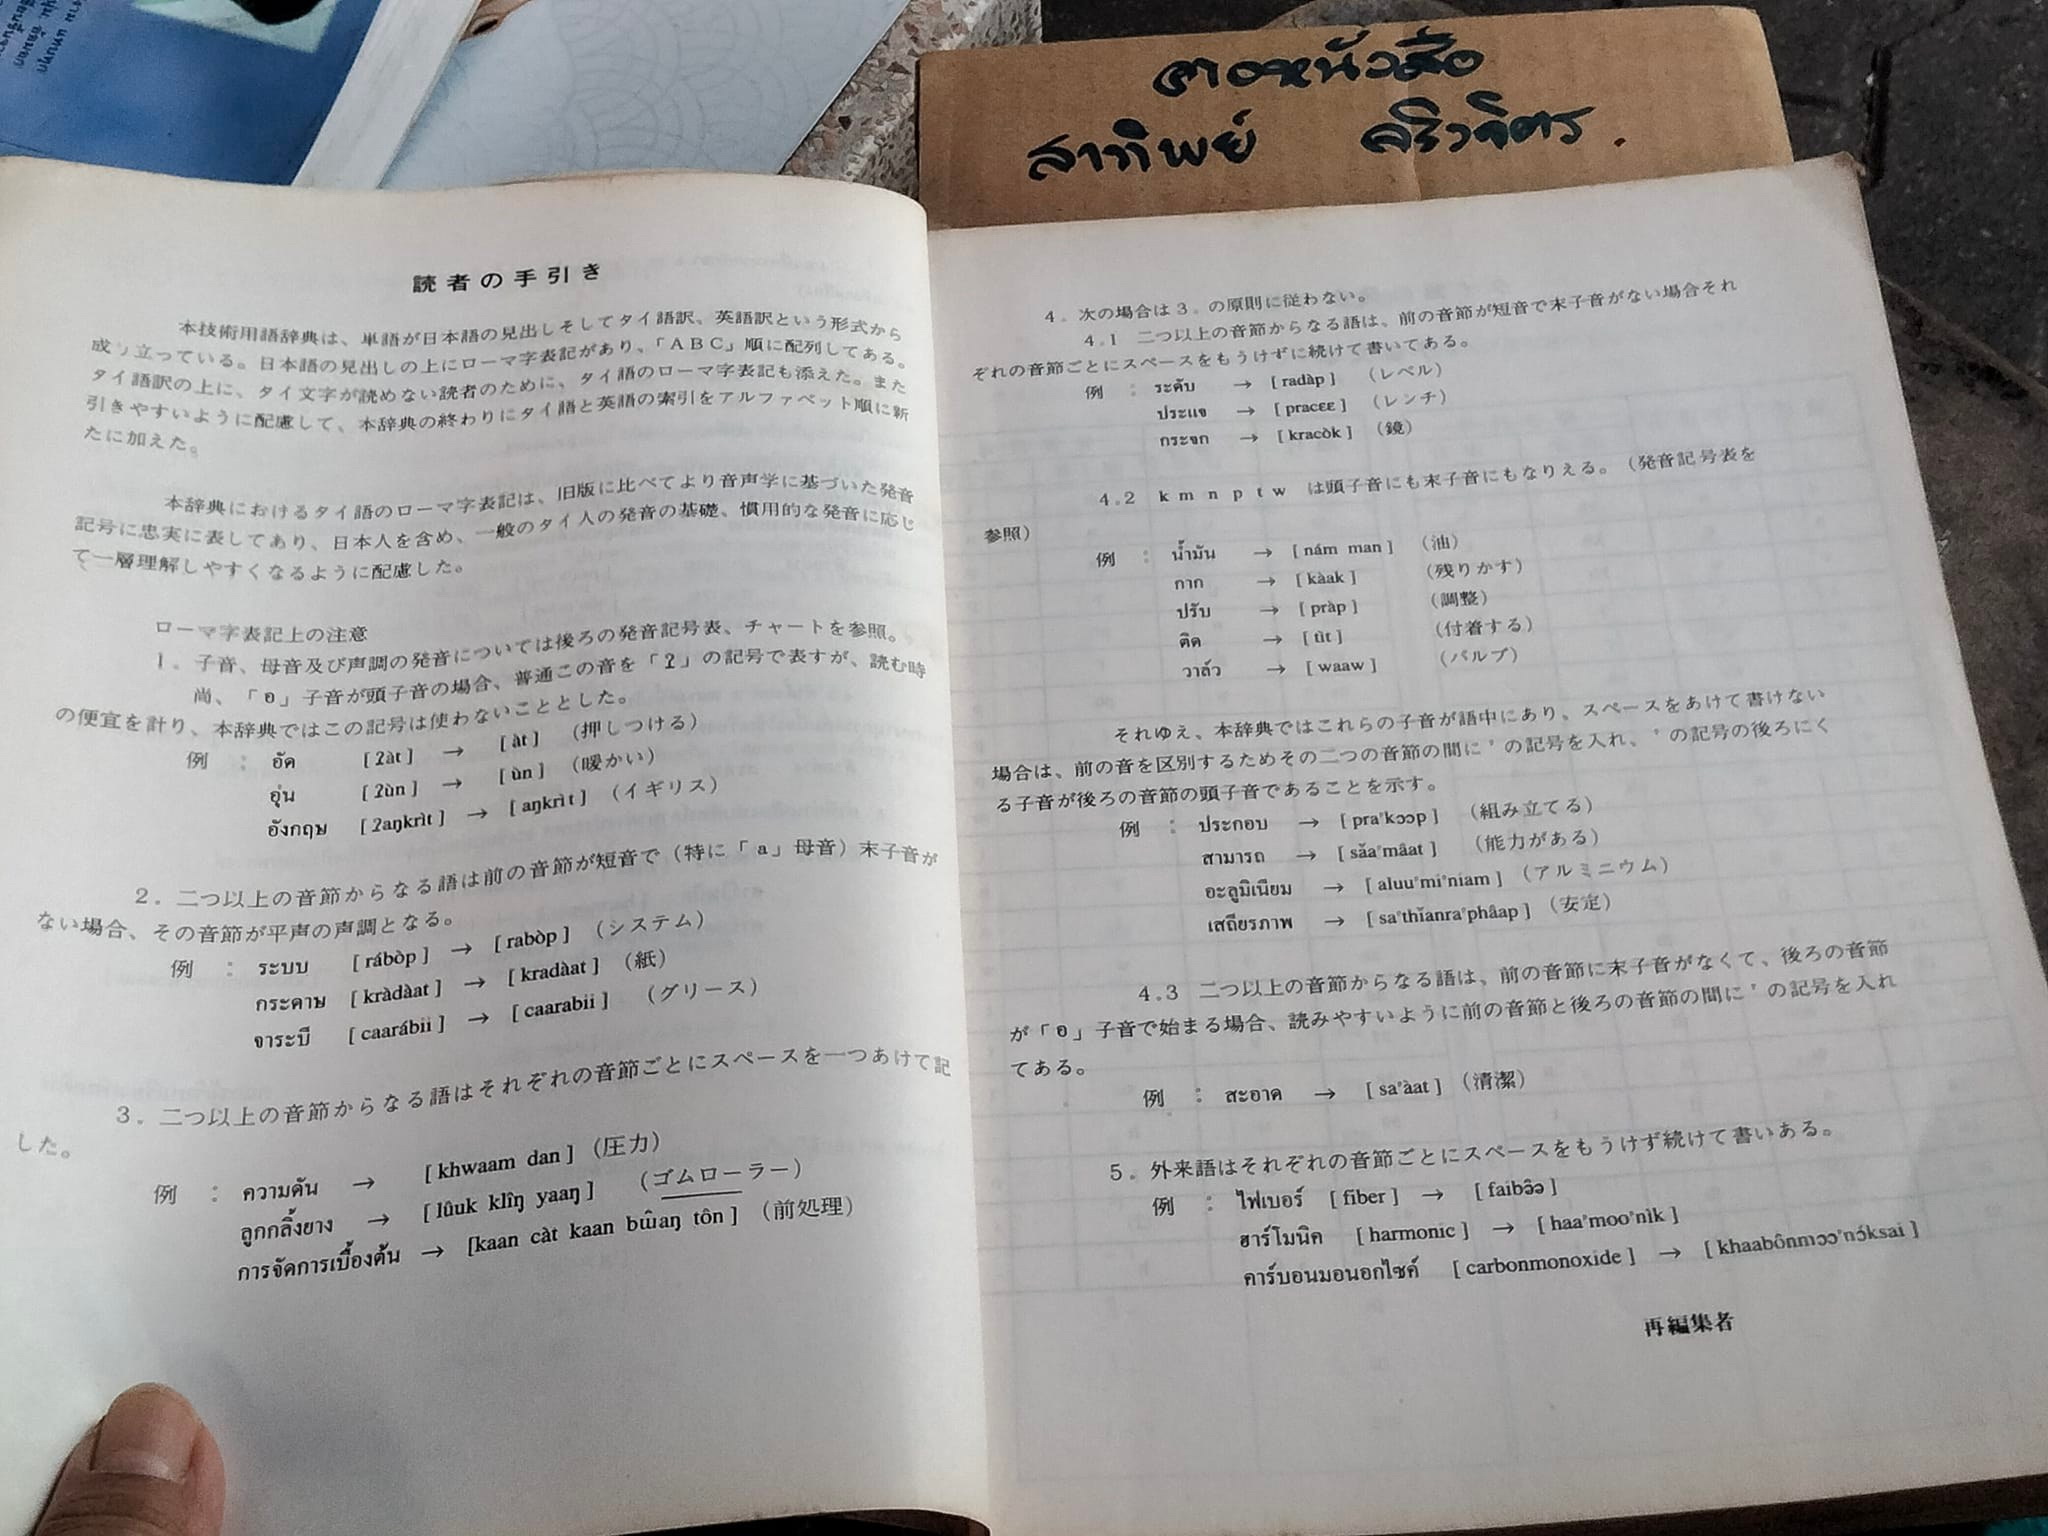 ศาลหนังสือ
สาทิพย์
読者の手引き
本技術用語辞典は、単語が日本語の見出しそしてタイ語訳、英語訳という形式から
成り立っている。日本語の見出しの上にローマ字表記があり、「ABC」順に配列してある。
タイ語訳の上に、タイ文字が読めない読者のために、タイ語のローマ字表記も添えた。また
引きやすいように配慮して、本辞典の終わりにタイ語と英語の索引をアルファベット順に新
たに加えた。
本辞典におけるタイ語のローマ字表記は、旧版に比べてより音声学に基づいた発音
記号に忠実に表してあり、日本人を含め、一般のタイ人の発音の基礎、慣用的な発音に応じ
て一層理解しやすくなるように配慮した。
ローマ字表記上の注意
1. 子音、母音及び声調の発音については後ろの発音記号表、チャートを参照。
尚、「อ」子音が頭子音の場合、普通この音を「ʔ」の記号で表すが、読む時
の便宜を計り、本辞典ではこの記号は使わないこととした。
例 : อัด [ʔàt] → [àt] (押しつける)
อุ่น [ʔùn] → [ùn] (暖かい)
อังกฤษ [ʔaŋkrìt] → [aŋkrìt] (イギリス)
2. 二つ以上の音節からなる語は前の音節が短音で(特に「a」母音)末子音が
ない場合、その音節が平声の声調となる。
例 : ระบบ [rábòp] → [rabòp] (システム)
กระดาษ [kràdàat] → [kradàat] (紙)
จาระบี [caarábii] → [caarabii] (グリース)
3. 二つ以上の音節からなる語はそれぞれの音節ごとにスペースを一つあけて記
した。
例 : ความดัน → [khwaam dan] (圧力)
ลูกกลิ้งยาง → [lûuk klîŋ yaaŋ] (ゴムローラー)
การจัดการเบื้องต้น → [kaan càt kaan bɯ̂aŋ tôn] (前処理)
4. 次の場合は3.の原則に従わない。
4.1 二つ以上の音節からなる語は、前の音節が短音で末子音がない場合それ
ぞれの音節ごとにスペースをもうけずに続けて書いてある。
例 : ระดับ → [radàp] (レベル)
ประแจ → [pracɛɛ] (レンチ)
กระจก → [kracòk] (鏡)
4.2 k m n p t w は頭子音にも末子音にもなりえる。(発音記号表を
参照)
例 : น้ำมัน → [nám man] (油)
กาก → [kàak] (残りかす)
ปรับ → [pràp] (調整)
ติด → [tìt] (付着する)
วาล์ว → [waaw] (バルブ)
それゆえ、本辞典ではこれらの子音が語中にあり、スペースをあけて書けない
場合は、前の音を区別するためその二つの音節の間に ' の記号を入れ、' の記号の後ろにく
る子音が後ろの音節の頭子音であることを示す。
例 : ประกอบ → [pra'kɔɔp] (組み立てる)
สามารถ → [sǎa'mâat] (能力がある)
อะลูมิเนียม → [aluu'mi'niam] (アルミニウム)
เสถียรภาพ → [sa'thǐanra'phâap] (安定)
4.3 二つ以上の音節からなる語は、前の音節に末子音がなくて、後ろの音節
が「อ」子音で始まる場合、読みやすいように前の音節と後ろの音節の間に ' の記号を入れ
てある。
例 : สะอาด → [sa'àat] (清潔)
5. 外来語はそれぞれの音節ごとにスペースをもうけず続けて書いある。
例 : ไฟเบอร์ [fiber] → [faibə̂ə]
ฮาร์โมนิค [harmonic] → [haa'moo'nìk]
คาร์บอนมอนอกไซค์ [carbonmonoxide] → [khaabônmɔɔ'nɔ́ksai]
再編集者